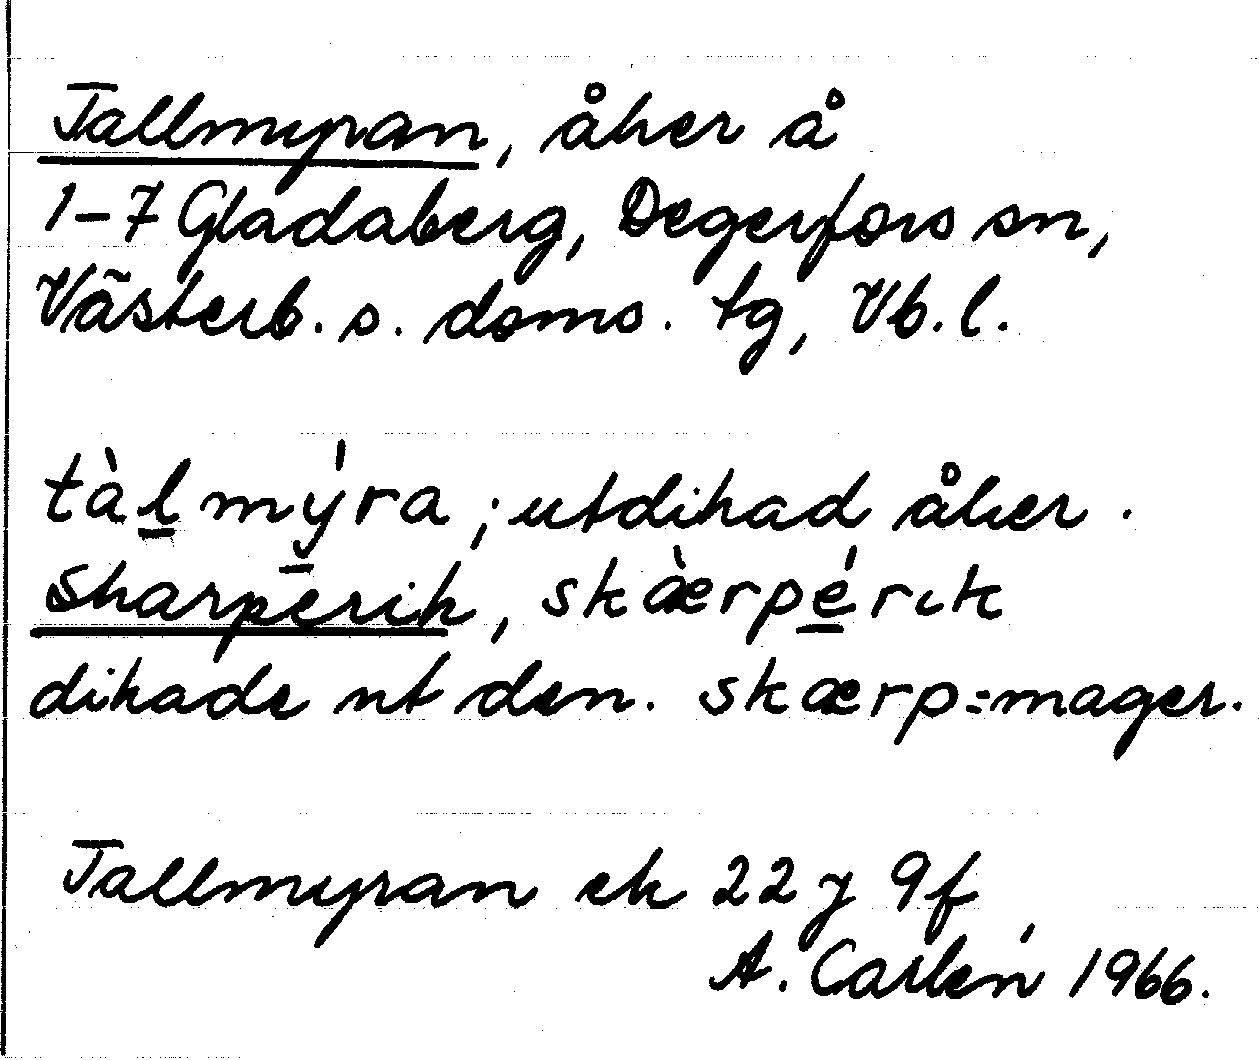 Tallmyran, åker å
1-7 Gladaberg, Degerfors sn,
Västerb. s. doms. tg, Vb. l.
tàl̲mý̲ra; utdikad åker.
Skarpérik, skæ̀rpé̲rık
dikade ut den. skærp=mager.
Tallmyran ek 22 J 9f
A. Carlén 1966.